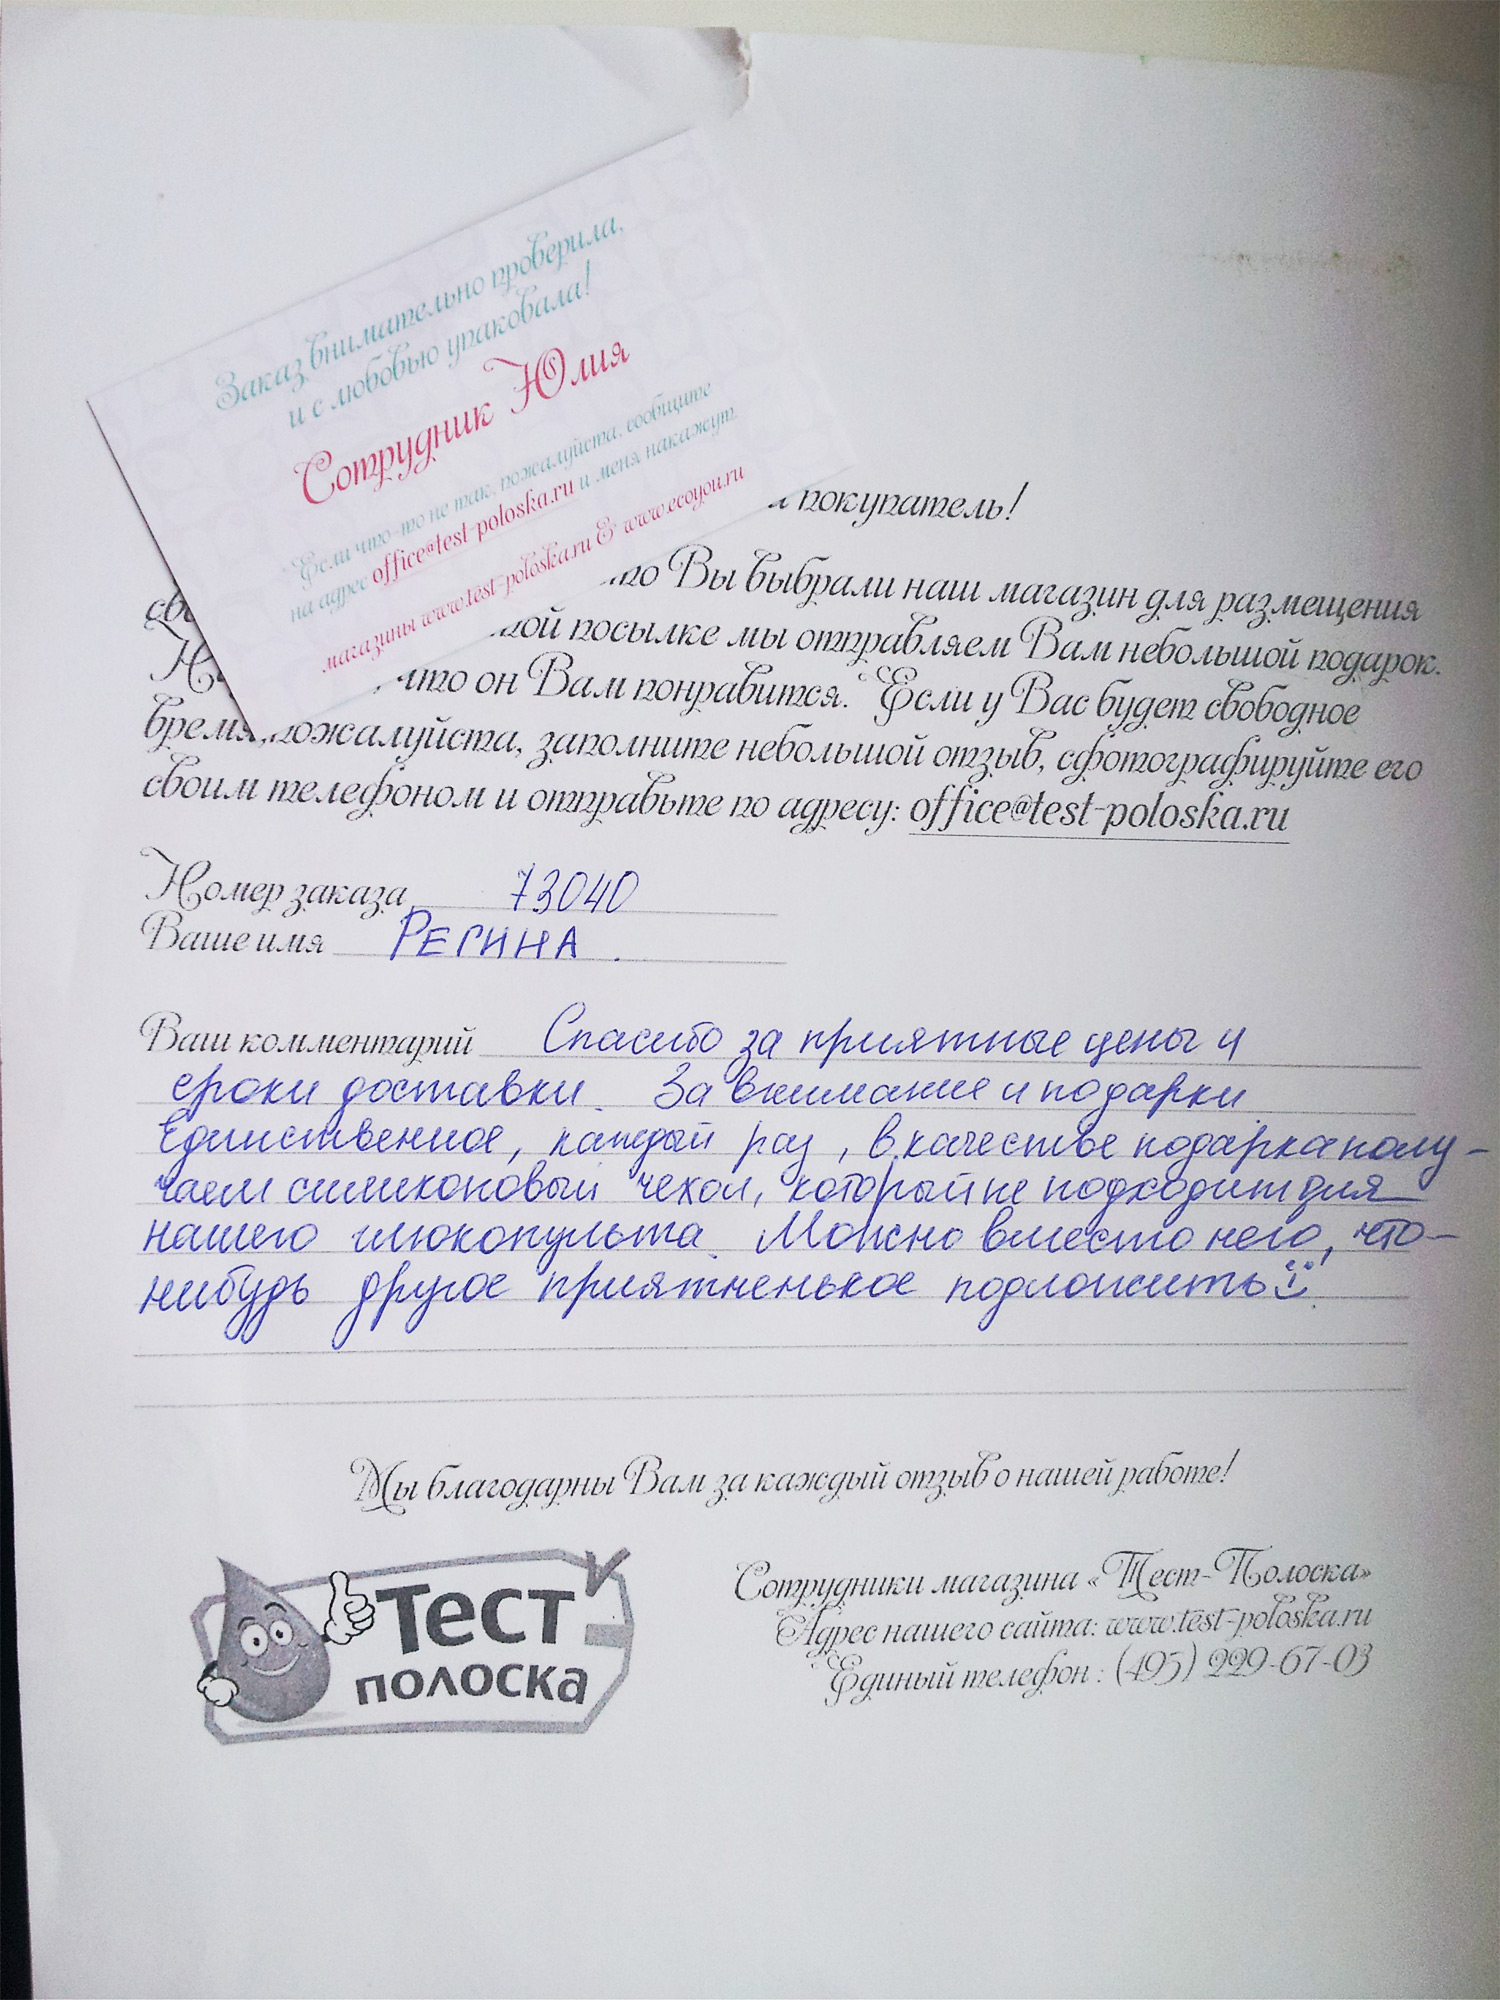 Заказ внимательно проверила,
и с любовью упаковала!
Сотрудник Юлия
Если что-то не так, пожалуйста, сообщите
на адрес office@test-poloska.ru и меня накажут.
магазины www.test-poloska.ru & www.ecoyou.ru
покупатель!
Вы выбрали наш магазин для размещения
посылке мы отправляем Вам небольшой подарок.
что он Вам понравится. Если у Вас будет свободное
время, пожалуйста, заполните небольшой отзыв, сфотографируйте его
своим телефоном и отправьте по адресу: office@test-poloska.ru
Номер заказа 73040
Ваше имя РЕГИНА.
Ваш комментарий Спасибо за приятные цены и
сроки доставки. За внимание и подарки
Единственное, каждый раз, в качестве подарка полу-
чаем силиконовый чехол, который не подходит для
нашего глюкопульта. Можно вместо него, что-
нибудь другое приятненькое подложить
Мы благодарны Вам за каждый отзыв о нашей работе!
Тест
полоска
Сотрудники магазина «Тест-Полоска»
Адрес нашего сайта: www.test-poloska.ru
Единый телефон: (495) 229-67-03